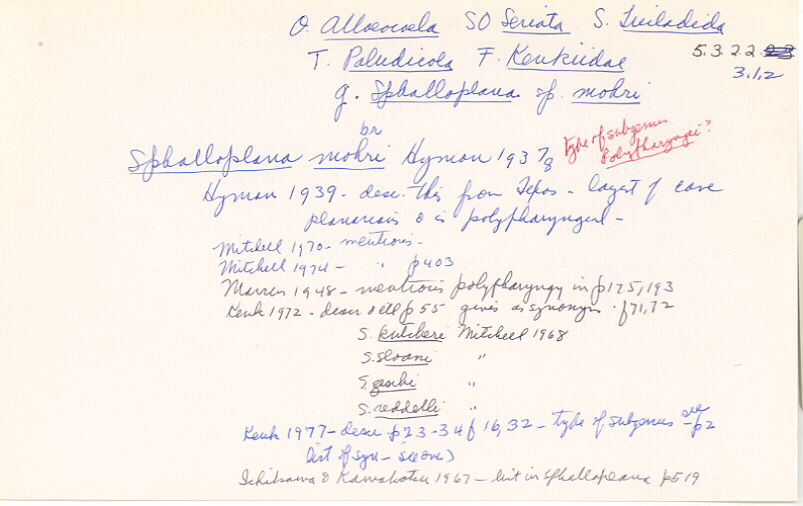 O. Alloeocoela SO Seriata S. Tricladida
5.3.2.2.
T. Paludicola F. Kenkiidae
3.1.2
g. Sphalloplana sp. mohri
br
Sphalloplana mohri Hyman 1937/8
type of subgenus Polypharyngei?
Hyman 1939 - desc. this from Texas - largest of cave
planarians & is polypharyngeal -
Mitchell 1970 - mentions -
Mitchell 1974 - " p403
Marcus 1948 - mentions polypharyngy in p175, 193
Kenk 1972 - descr & ill p55 gives as synonyms f71,72
S. kutscheri Mitchell 1968
S. sloani "
S. zeschi "
S. reddelli "
Kenk 1977 - descr p23-34 f16,32 - type of subgenus see p2
list of syn - (see over)
Ichikawa & Kawakatsu 1967 - list in Sphalloplana p519